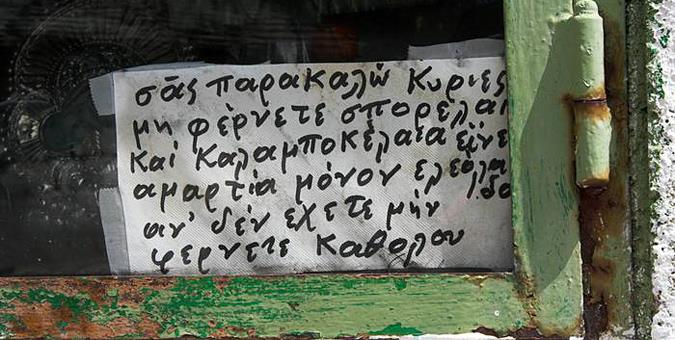 σᾶς παρακαλῶ Κυρίες
μη φέρνετε σπορέλαι
και καλαμποκέλαια εἶνε
αμαρτία μόνον ελεόλα
αν' δέν εχετε μήν
φερνετε καθολου